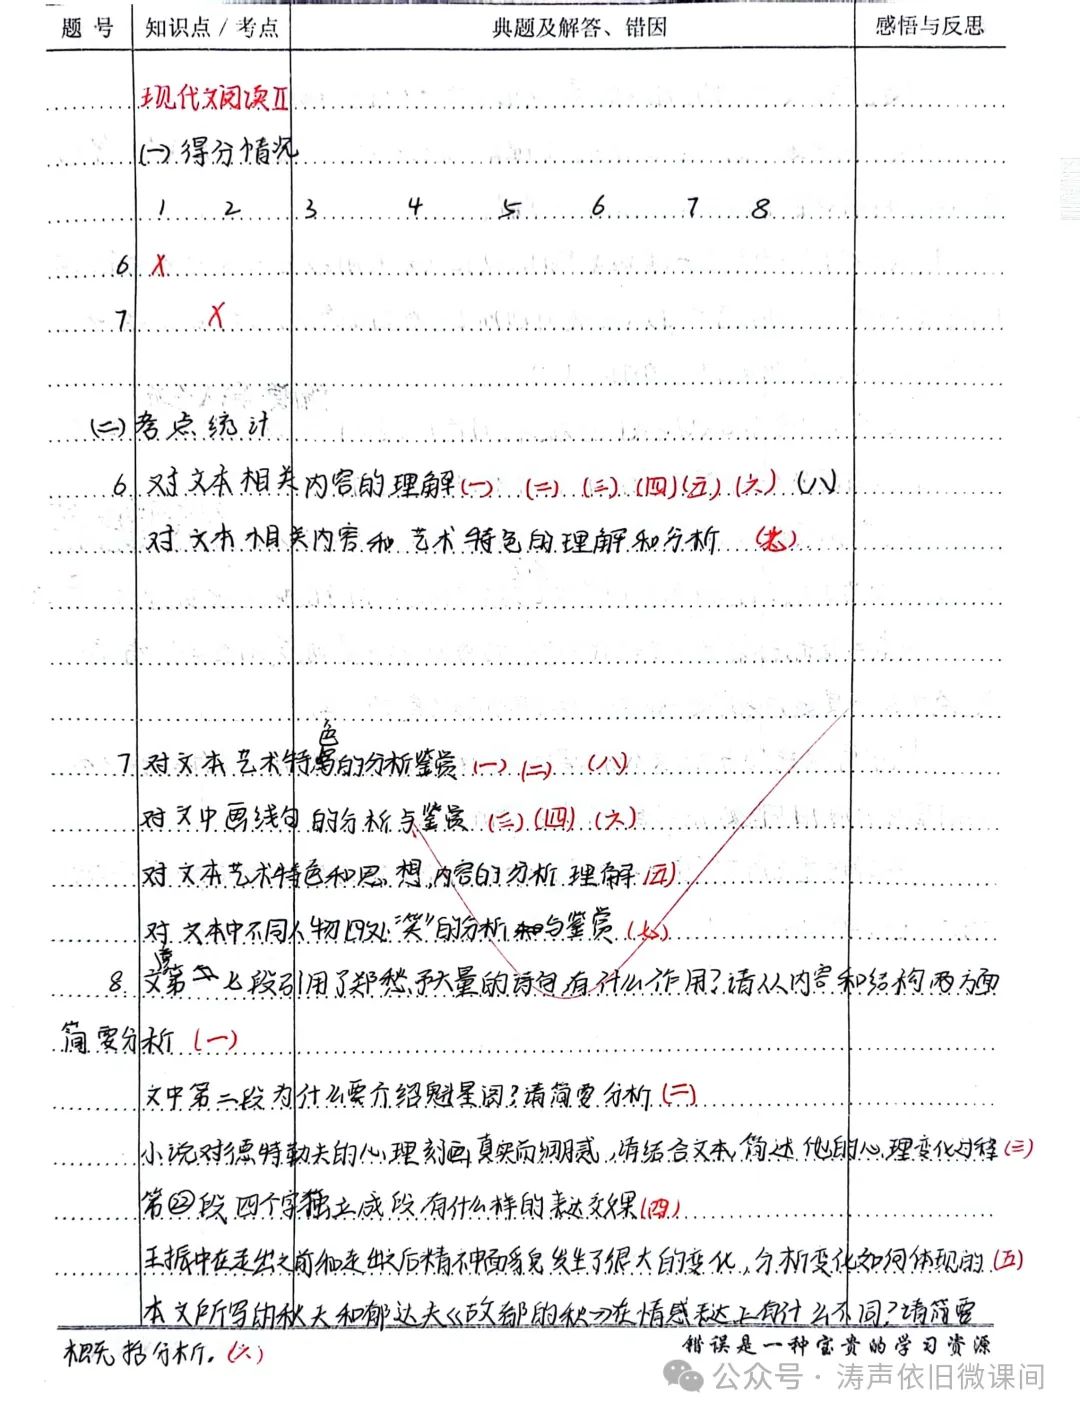 题 号 知识点 / 考点 典题及解答、错因 感悟与反思
现代文阅读Ⅱ
(一) 得分情况
1 2 3 4 5 6 7 8
6 X
7 X
(二) 考点统计
6 对文本相关内容的理解 (一) (二) (三) (四) (五) (六) (八)
对文本相关内容和艺术特色的理解和分析 (七)
7 对文本艺术特色的分析鉴赏 (一) (二) (八)
对文中画线句的分析与鉴赏 (三) (四) (六)
对文本艺术特色和思想,内容的分析理解 (五)
对文本中不同人物四处“笑”的分析与鉴赏 (七)
8 文章第七段引用了郑愁予大量的诗句,有什么作用?请从内容和结构两方面
简要分析 (一)
文中第二段为什么要介绍魁星阁?请简要分析 (二)
小说对德特勒夫的心理刻画真实而细腻,请结合文本,简述他的心理变化过程 (三)
第㉒段四个字独立成段,有什么样的表达效果 (四)
王振中在走出之前和走出之后精神面貌发生了很大的变化,分析变化如何体现的 (五)
本文所写的秋天和郁达夫《故都的秋》在情感表达上有什么不同?请简要
概括分析。(六)
错误是一种宝贵的学习资源
公众号 · 涛声依旧微课间